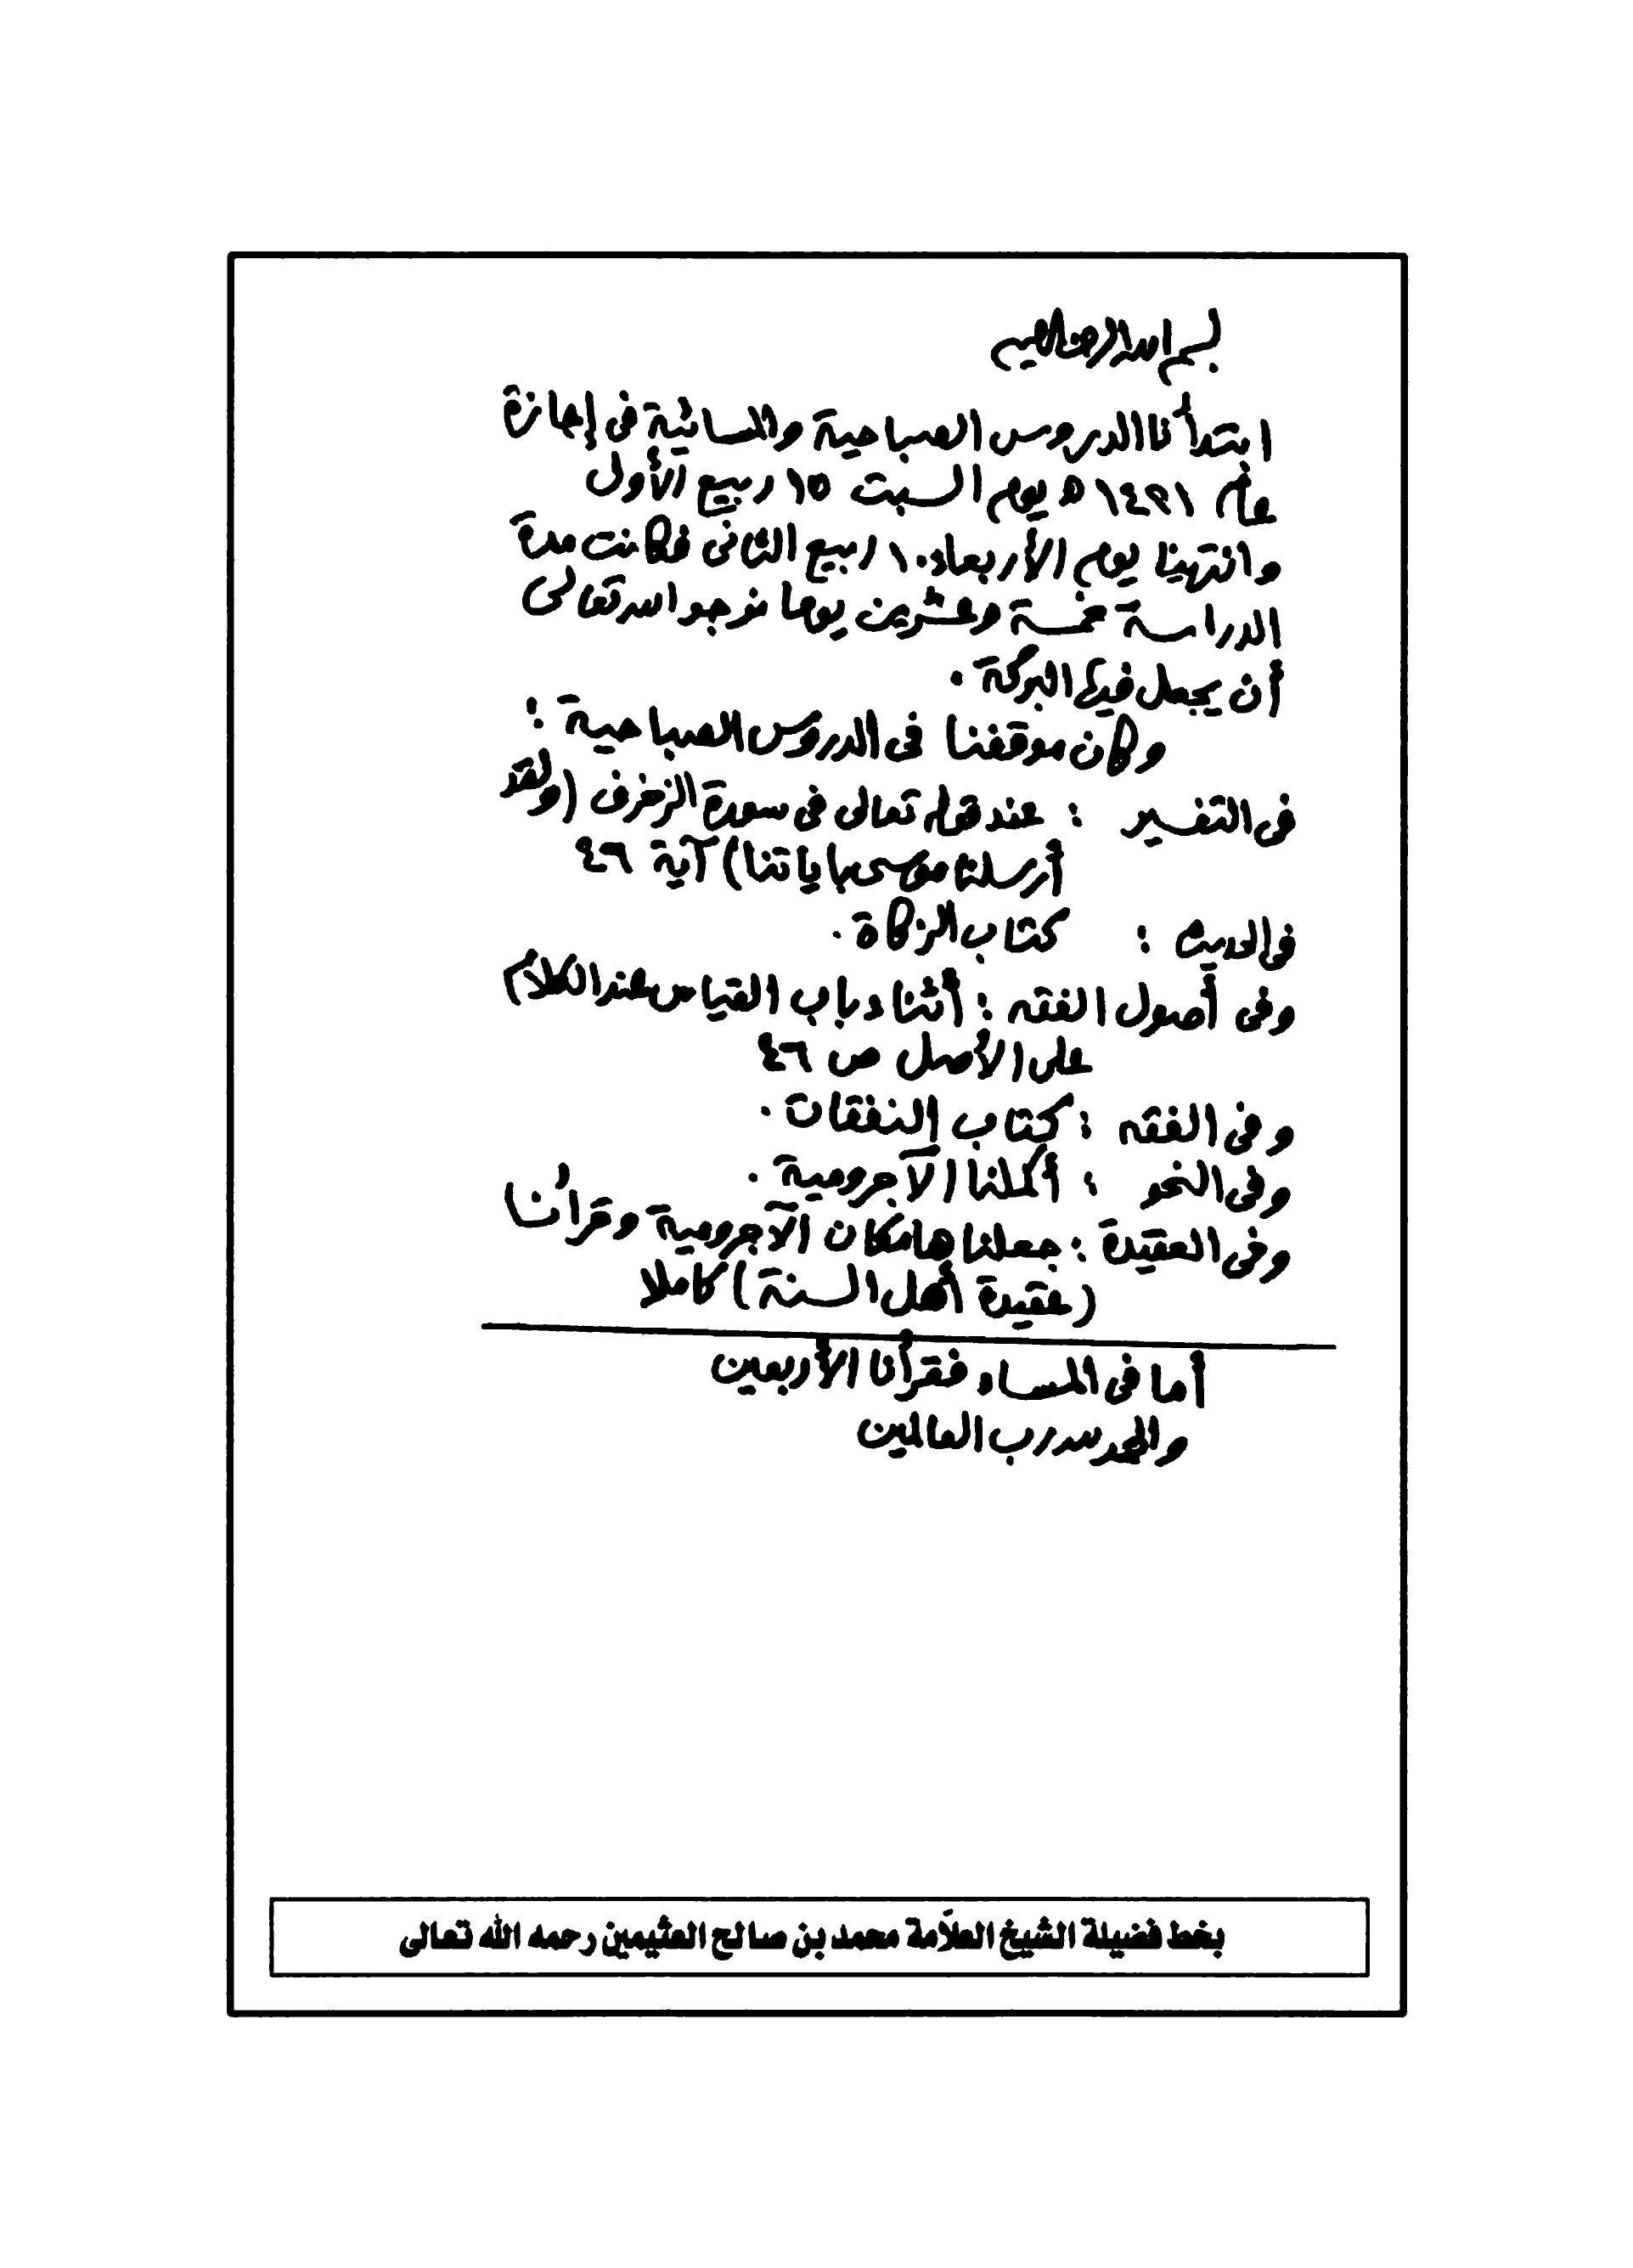 بسم الله الرحمن الرحيم
ابتدأنا الدروس الصباحية والمسائية في إجازة
عام ١٤٢١ ه يوم السبت ١٥ ربيع الأول
وانتهينا يوم الأربعاء ١٠ ربيع الثاني فكانت مدة
الدراسة خمسة وعشرين يوما نرجو الله تعالى
أن يجعل فيها البركة .
وكان موقفنا في الدروس الصباحية :
في التفسير : عند قوله تعالى في سورة الزخرف (ولقد
أرسلنا موسى بآياتنا) آية ٤٦
في الحديث : كتاب الزكاة .
وفي أصول الفقه : أثناء باب القياس عند الكلام
على الأصل ص ٤٦
وفي الفقه : كتاب النفقات .
وفي النحو : أكملنا الآجرومية .
وفي العقيدة : جعلناها مكان الآجرومية وقرأنا
(عقيدة أهل السنة) كاملا
أما في المساء فقرأنا الأربعين
والحمد لله رب العالمين
بخط فضيلة الشيخ العلّامة محمد بن صالح العثيمين رحمه الله تعالى